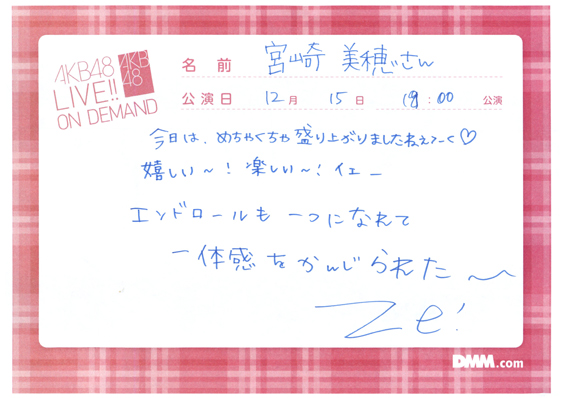 AKB48
LIVE!!
ON DEMAND
AKB
48
名前 宮崎 美穂さん
公演日 12月 15日 19:00 公演
今日は、めちゃくちゃ盛り上がりましたねえ〜く♡
嬉しい〜!楽しい〜!イェー
エンドロールも 一つになれて
一体感をかんじられた〜
Ze!
DMM.com